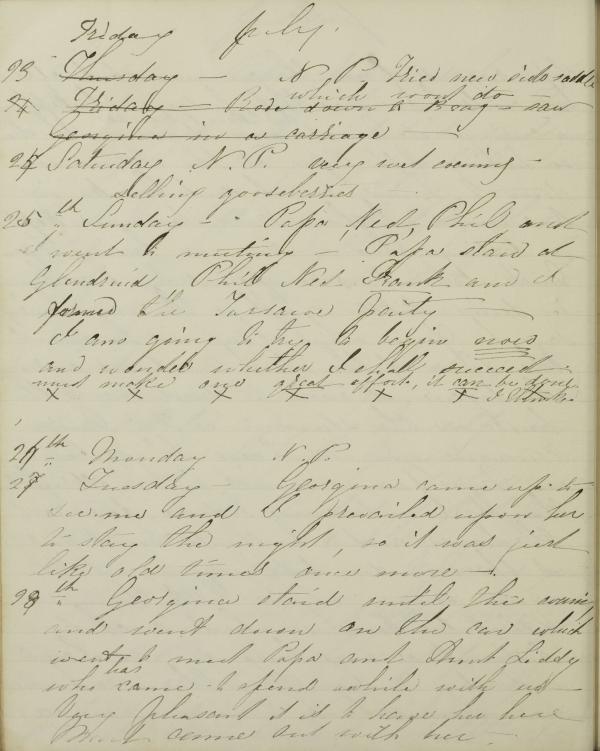 Friday July.
23 Thursday — N. P. Tried new side saddle
24 Friday — Rode down to Bray — saw
which wont do
Georgina in a carriage
24 Saturday N. P. very wet evening —
Selling gooseberries —
25th Sunday — Papa, Ned, Phil and I
went to meeting — Papa staid at
Glendruid Phil Ned Frank and I
formed the party —
I am going to try to begin now
and wonder whether I shall succeed
must make one great effort, it can be done
x x x x x I think.
26th Monday N. P.
27 Tuesday — Georgina came up to
see me and I prevailed upon her
to stay the night, so it was just
like old times once more —
28th Georgina staid until this evening
and went down on the car which
went to meet Papa and Aunt Liddy
who has came to spend awhile with us
Very pleasant it is to have her here
came out with her —